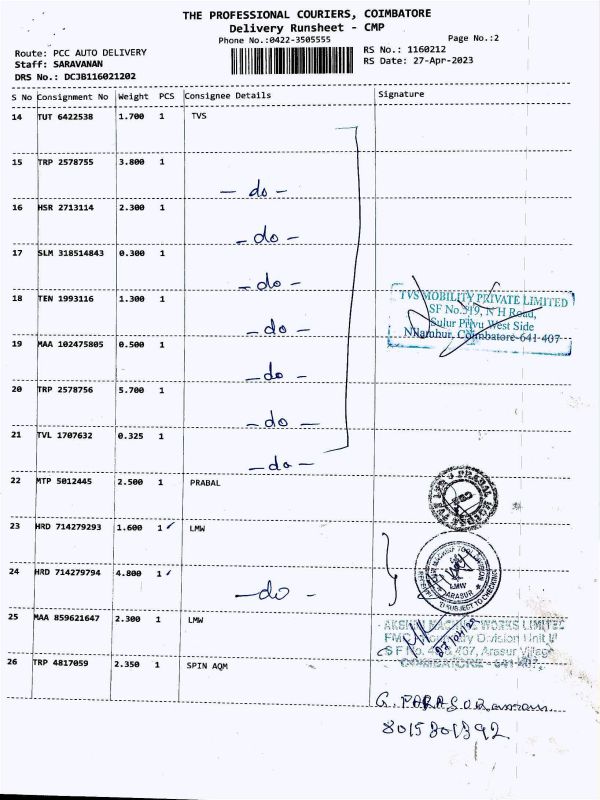 THE PROFESSIONAL COURIERS, COIMBATORE
Delivery Runsheet - CMP
Phone No.:0422-3505555 Page No.:2
Route: PCC AUTO DELIVERY RS No.: 1160212
Staff: SARAVANAN RS Date: 27-Apr-2023
DRS No.: DCJB116021202
S No Consignment No Weight PCS Consignee Details Signature
14 TUT 6422538 1.700 1 TVS
15 TRP 2578755 3.800 1
- do -
16 HSR 2713114 2.300 1
- do -
17 SLM 318514843 0.300 1
- do -
18 TEN 1993116 1.300 1
- do -
TVS MOBILITY PRIVATE LIMITED
SF No.519, N H Road,
Sulur Privu West Side
Nilambur, Coimbatore-641 407
19 MAA 102475805 0.500 1
- do -
20 TRP 2578756 5.700 1
- do -
21 TVL 1707632 0.325 1
- do -
22 MTP 5012445 2.500 1 PRABAL
PRABAL
23 HRD 714279293 1.600 1 ✓ LMW
24 HRD 714279794 4.800 1 ✓
- do -
LMW
ARASUR
SUBJECT TO CHECKING
25 MAA 859621647 2.300 1 LMW
WORKS LIMITED
Division Unit II
Arasur Village
COIMBATORE - 641 407.
26 TRP 4817059 2.350 1 SPIN AQM
8015301392